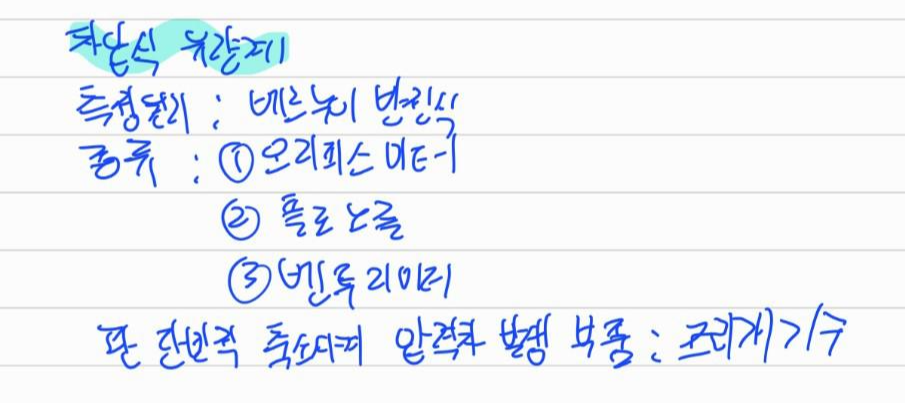 차압식 유량계
측정원리 : 베르누이 방정식
종류 : ① 오리피스 미터
② 플로노즐
③ 벤투리미터
관 단면적 축소 압력차 발생 부품 : 조리개기구